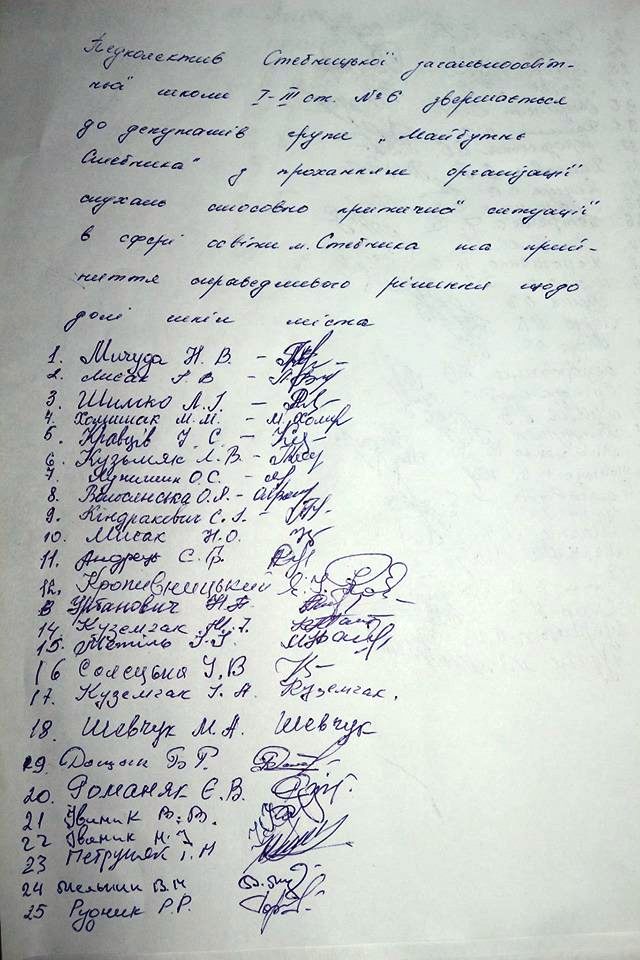 Педколектив Стебницької загальноосвіт-
ньої школи І-ІІІ ст. №6 звертається
до депутатів групи „Майбутнє
Стебника" з проханням організації
слухань стосовно критичної ситуації
в сфері освіти м. Стебника та прий-
няття справедливого рішення щодо
долі шкіл міста
1. Мичуда Н. В. -
2. Лисак Г. В -
3. Шимко Л. І. -
4. Хомишак М. М. - М. Хомиш
5. Кравців У. С. -
6. Кузьмяк Л. В. -
7. О. С. -
8. Волосянська О. Я. -
9. Кіндракевич С. І. -
10. Мисак Н. О.
11. Андрець С. В.
12. Кропивницький Я. У.
13 Урбанович Н. П.
14. Куземчак М. Т.
15. І. І.
16 Солецька У. В
17. Куземчак І. А. Куземчак.
18. Шевчук М. А. Шевчук
19. Б. Р.
20. Романяк Є. В.
21 Іваник В. В.
22 Іваник Н. І
23 Петруняк І. М
24 В. М
25 Рудник Р. Р.